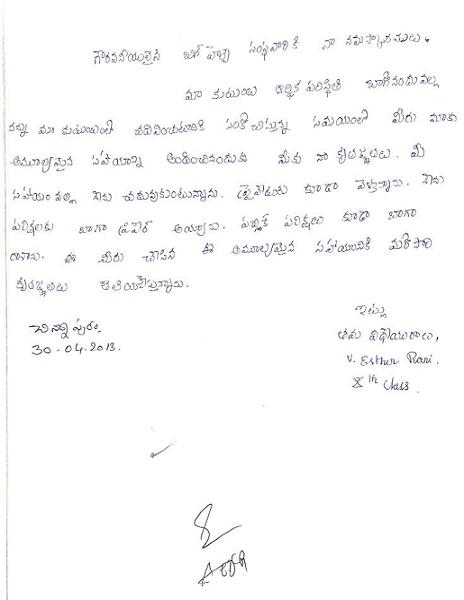 గౌరవనీయులైన బాల్ పబ్బా సంస్థవారికి నా నమస్కారములు.
మా కుటుంబ ఆర్థిక పరిస్థితి బాగోనందువల్ల
నన్ను మా కుటుంబంలో చదివించుటానికి సంకోచిస్తున్న సమయంలో మీరు మాకు
అమూల్యమైన సహాయాన్ని అందించినందుకు మీకు నా కృతజ్ఞతలు. మీ
సహాయం వల్ల నేను చదువుకుంటున్నాను. ట్రైనింగుకు కూడా వెళ్తున్నాను. నేను
పరీక్షలకు బాగా ప్రిపేర్ అయ్యాను. పబ్లిక్ పరీక్షలు కూడా బాగా
రాశాను. ఈ మీరు చేసిన ఈ అమూల్యమైన సహాయానికి మరోసారి
కృతజ్ఞతలు తెలియచేస్తున్నాను.
చిన్నాపురం,
30-04-2013.
ఇట్లు
తమ విధేయురాలు,
V. Esther Rani.
Xth class.